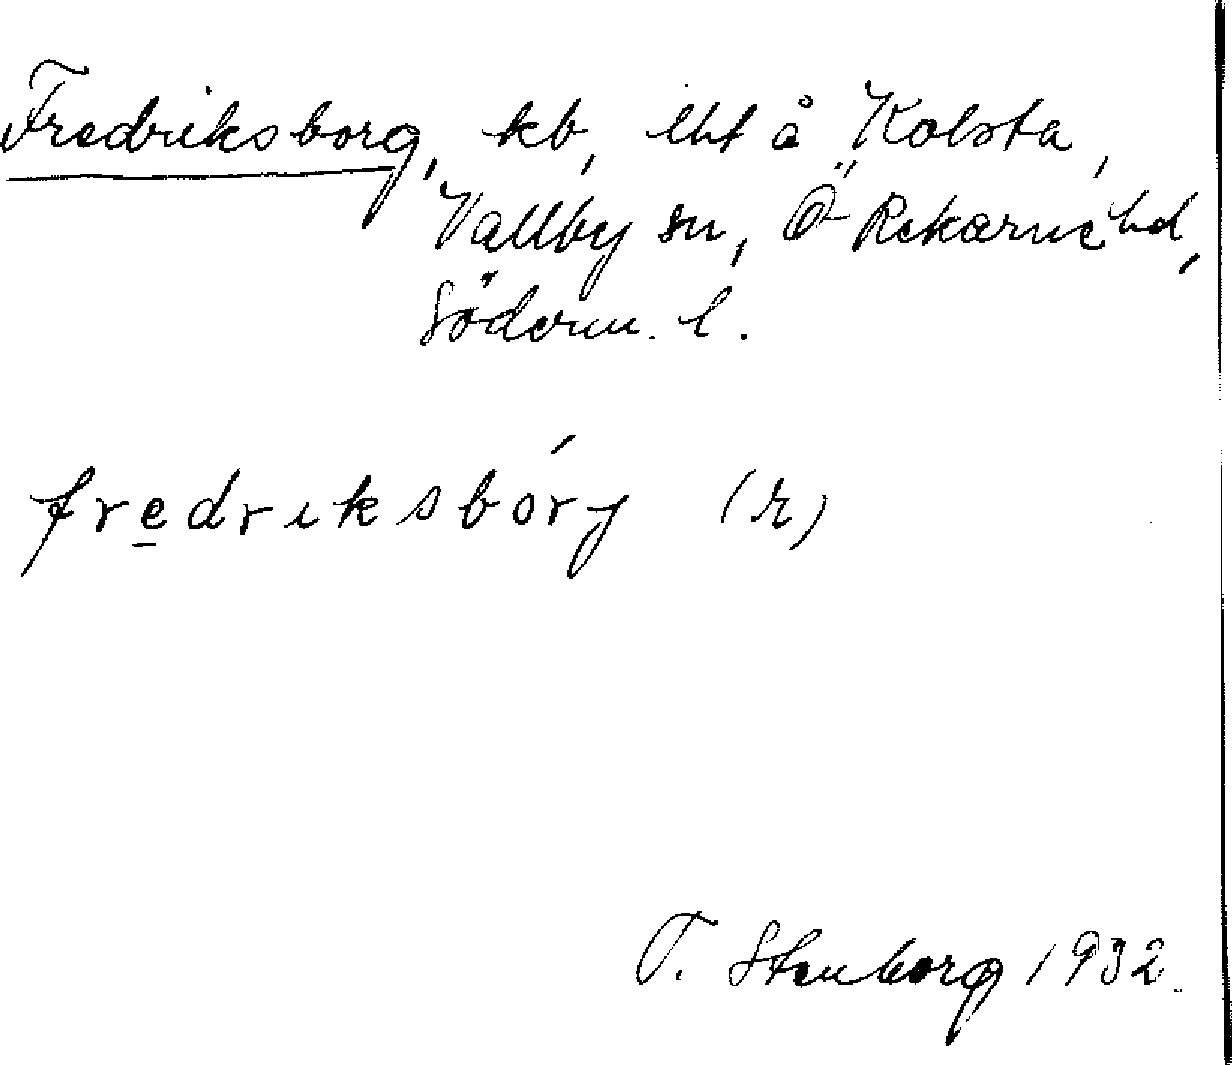 Fredriksborg, kb, lht å Kolsta,
Vallby sn, Ö Rekarne hd,
Söderm. l.
fredriksbórj (r)
T. Stenborg 1932.